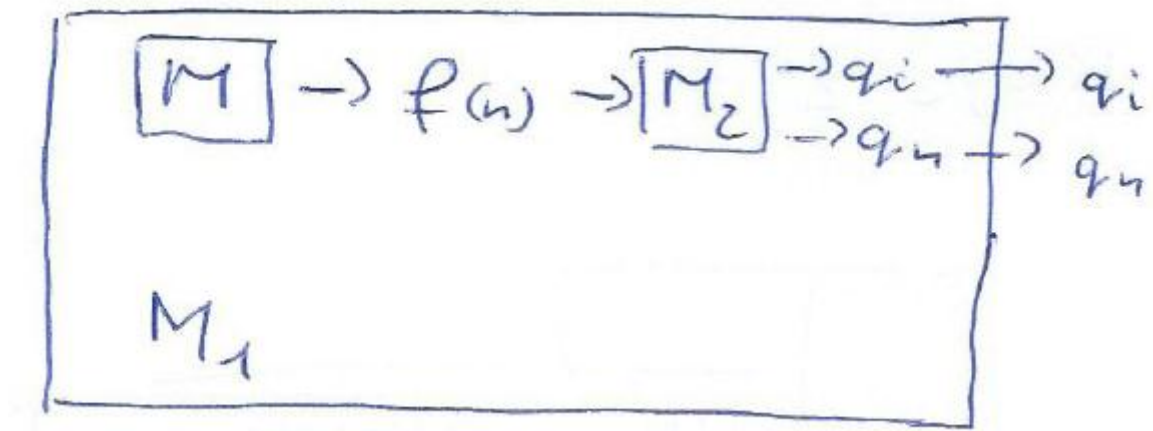 M → f(n) → M₂ → qi → qi
→ qn → qn
M₁